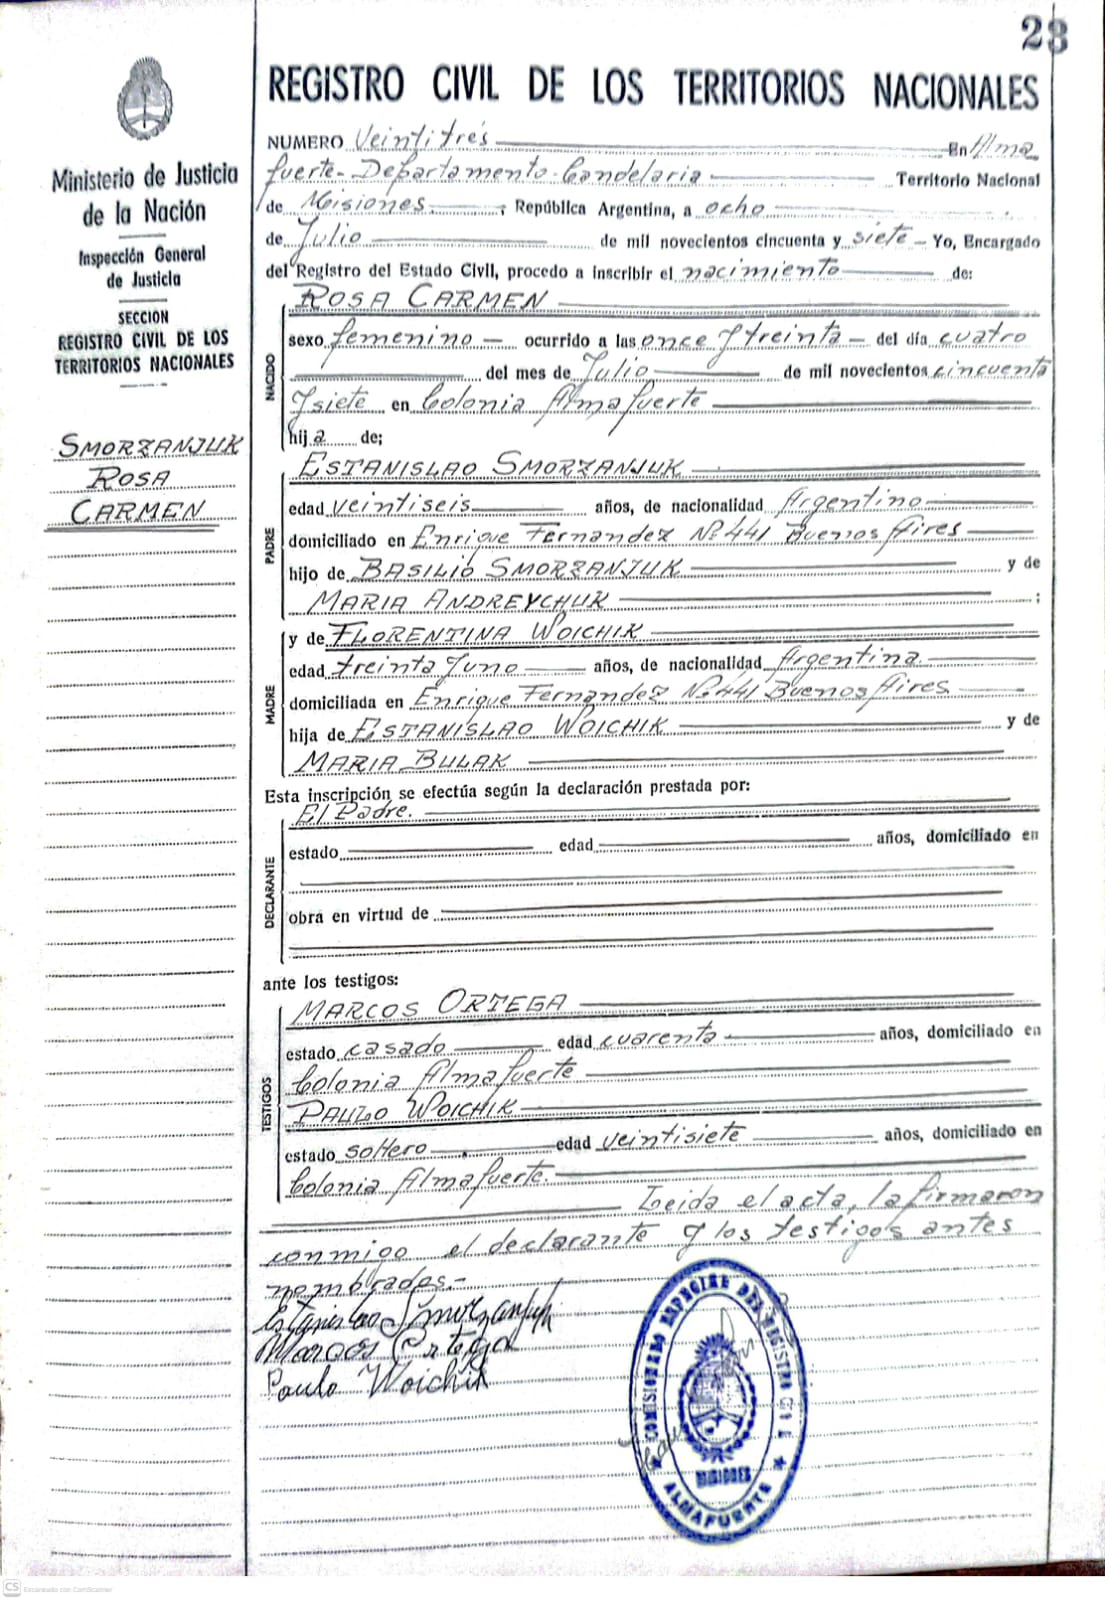 23
REGISTRO CIVIL DE LOS TERRITORIOS NACIONALES
Ministerio de Justicia
de la Nación
Inspección General
de Justicia
SECCION
REGISTRO CIVIL DE LOS
TERRITORIOS NACIONALES
SMORZANJUK
ROSA
CARMEN
NUMERO Veintitrés En Alma
fuerte - Departamento Candelaria Territorio Nacional
de Misiones, República Argentina, a ocho
de Julio de mil novecientos cincuenta y siete - Yo, Encargado
del Registro del Estado Civil, procedo a inscribir el nacimiento de:
NACIDO
ROSA CARMEN
sexo femenino - ocurrido a las once y treinta - del día cuatro
del mes de Julio de mil novecientos cincuenta
y siete en Colonia Almafuerte
hija de;
PADRE
ESTANISLAO SMORZANJUK
edad veintiseis años, de nacionalidad Argentino
domiciliado en Enrique Fernandez Nº 441 Buenos Aires
hijo de BASILIO SMORZANJUK y de
MARIA ANDREYCHUK ;
MADRE
y de FLORENTINA WOICHIK
edad treinta y uno años, de nacionalidad Argentina.
domiciliada en Enrique Fernandez Nº 441 Buenos Aires
hija de ESTANISLAO WOICHIK y de
MARIA BULAK
Esta inscripción se efectúa según la declaración prestada por:
DECLARANTE
El Padre.
estado edad años, domiciliado en
obra en virtud de
ante los testigos:
TESTIGOS
MARCOS ORTEGA
estado casado edad cuarenta años, domiciliado en
Colonia Almafuerte
PAULO WOICHIK
estado soltero edad veintisiete años, domiciliado en
Colonia Almafuerte.
Leida el acta, la firmaron
conmigo el declarante y los testigos antes
nombrados.-
Estanislao Smorzanjuk
Marcos Ortega
Paulo Woichik
COMISIONADO ESPECIAL DEL REGISTRO CIVIL
MISIONES
ALMAFUERTE
CS Escaneado con CamScanner